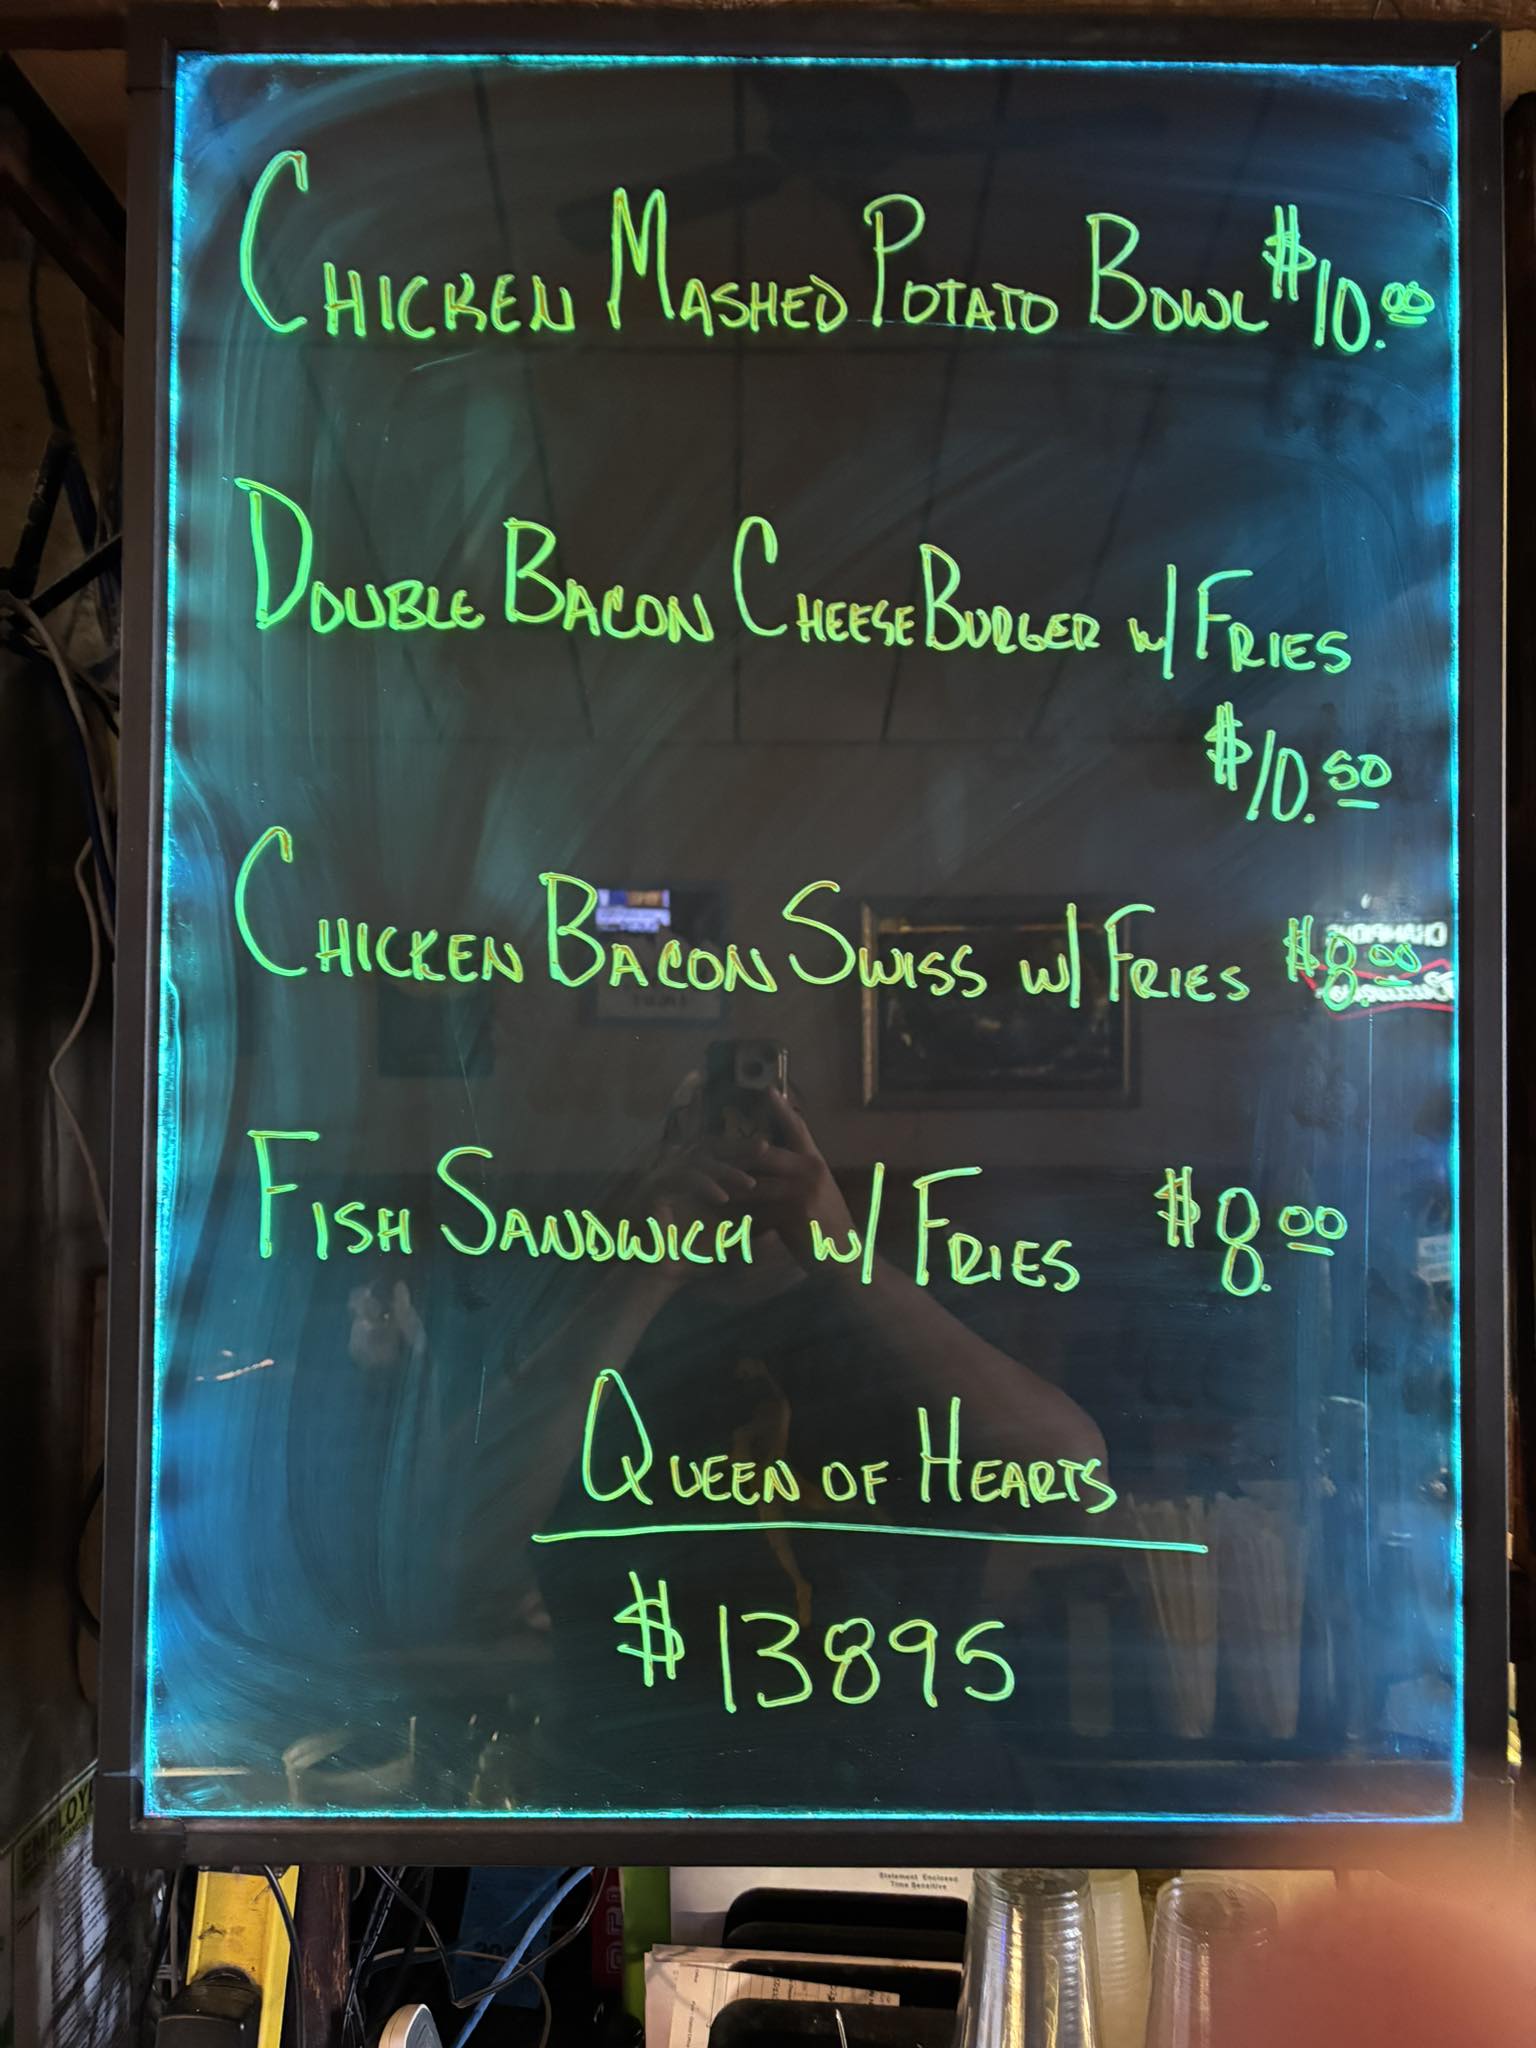 CHICKEN MASHED POTATO BOWL $10.00
DOUBLE BACON CHEESEBURGER w/ FRIES
$10.50
CHICKEN BACON SWISS w/ FRIES $8.00
FISH SANDWICH w/ FRIES $8.00
QUEEN OF HEARTS
$13895
EMPLOY
Statement Enclosed
Time Sensitive